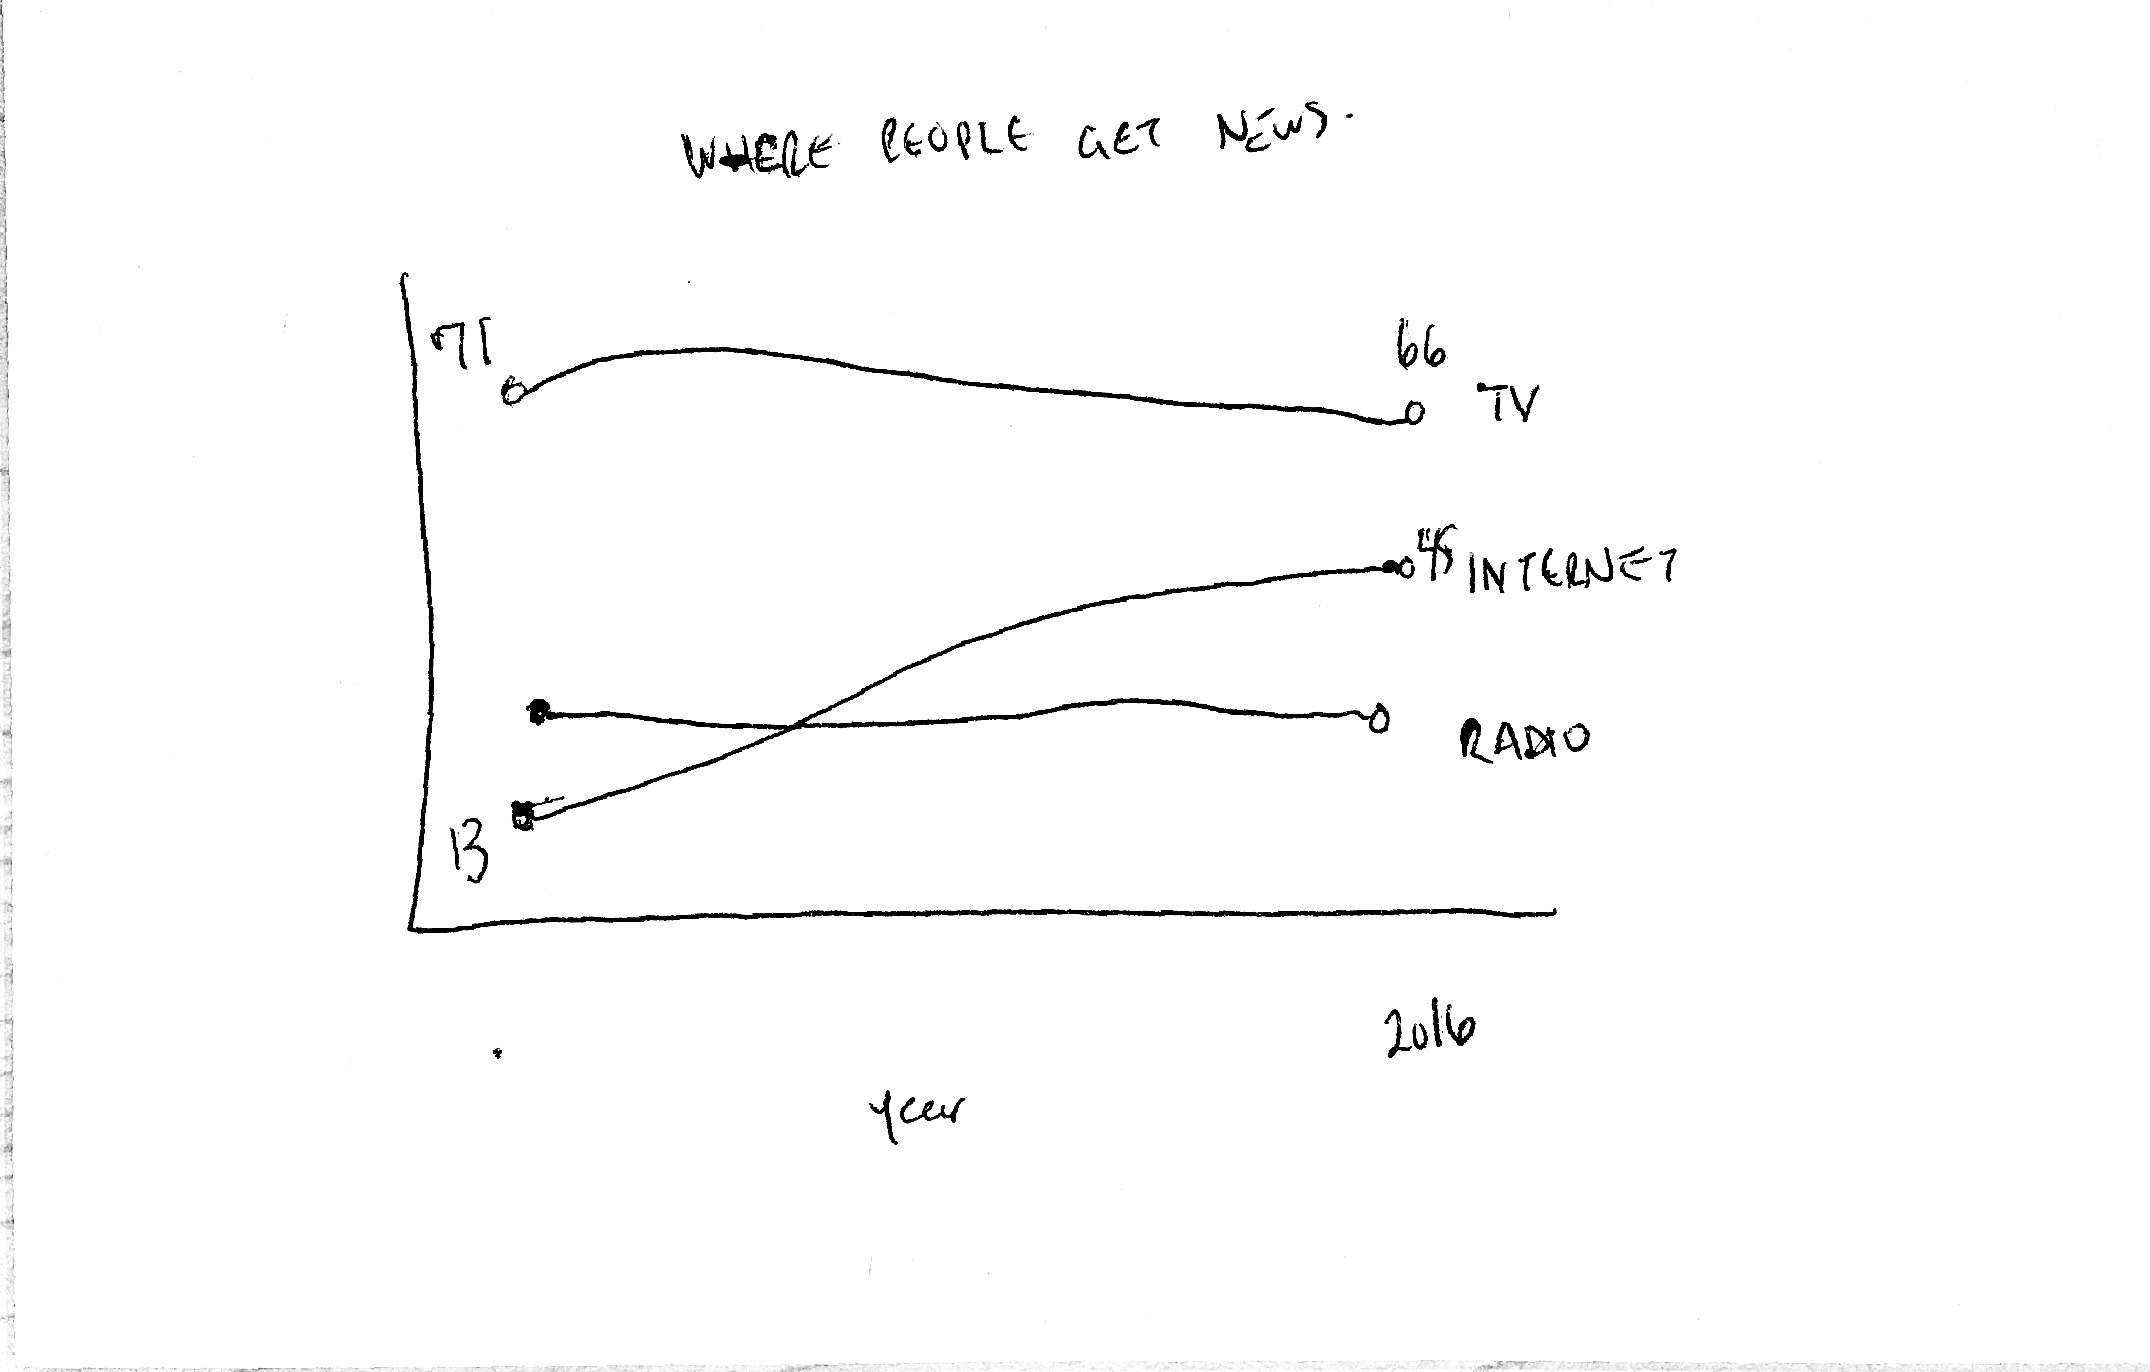 WHERE PEOPLE GET NEWS.
71
66
TV
45 INTERNET
RADIO
13
2016
year